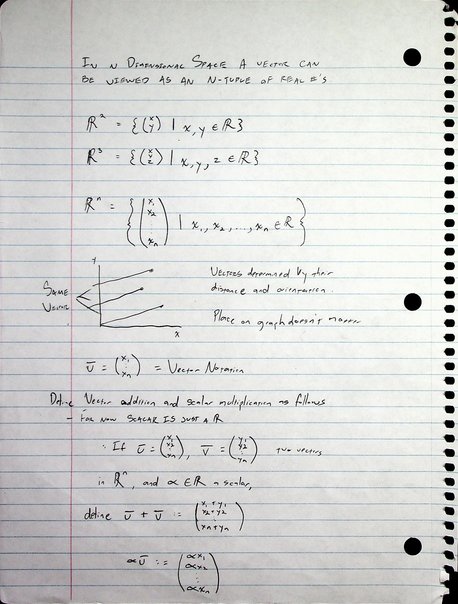 In n Dimensional Space A vector can
be viewed as an n-tuple of real #'s
ℝ² = {(x y) | x, y ∈ ℝ}
ℝ³ = {(x y z) | x, y, z ∈ ℝ}
ℝⁿ = {(x₁ x₂ ⋮ xₙ) | x₁, x₂, ..., xₙ ∈ ℝ}
y
Same
Vector
x
Vectors determined by their
distance and orientation.
Place on graph doesn't matter
ū = (x₁ ⋮ xₙ) = Vector Notation
Define Vector addition and scalar multiplication as follows
- For now scalar is just a ℝ
∴ If ū = (x₁ x₂ ⋮ xₙ), v̄ = (y₁ y₂ ⋮ yₙ) two vectors
in ℝⁿ, and α ∈ ℝ a scalar,
define ū + v̄ := (x₁+y₁ x₂+y₂ ⋮ xₙ+yₙ)
αū := (αx₁ αx₂ ⋮ αxₙ)